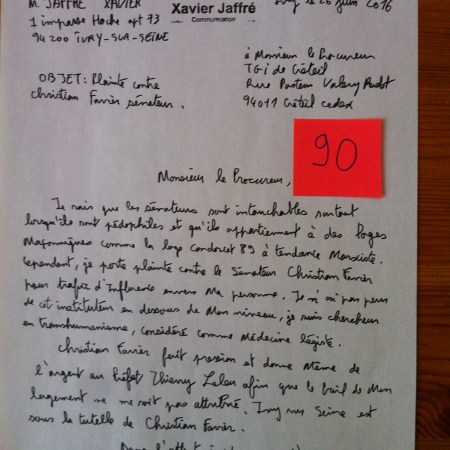 M. JAFFRÉ XAVIER
1 impasse Hoche apt 73
94200 IVRY-SUR-SEINE
Xavier Jaffré
Communication
Ivry le 26 juin 2016
OBJET: Plainte contre
Christian Favier sénateur.
à Monsieur le Procureur
TGI de Créteil
Rue Pasteur Valery Radot
94011 Créteil cedex
90
Monsieur le Procureur,
Je sais que les sénateurs sont intouchables surtout
lorsqu'ils sont pédophiles et qu'ils appartiennent à des loges
Maçonniques comme la loge Condorcet 89 à tendance Marxiste.
Cependant, je porte plainte contre le Sénateur Christian Favier
pour trafic d'Influence envers Ma personne. Je n'ai pas peur
de cet instituteur en dessous de Mon niveau, je suis chercheur
en transhumanisme, considéré comme Médecine légiste.
Christian Favier fait pression et donne Même de
l'argent au Préfet Thierry Leleu afin que le bail de Mon
logement ne me soit pas attribué. Ivry sur Seine est
sous la tutelle de Christian Favier.